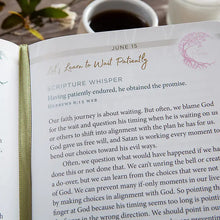 JUNE 15
Let's Learn to Wait Patiently
SCRIPTURE WHISPER
Having patiently endured, he obtained the promise.
HEBREWS 6:15 WEB
Our faith journey is about waiting. But often, we blame God
for the wait and question his timing when he is waiting on us
or others to shift into alignment with the plan he has for us.
God gave us free will, and Satan is working every moment to
bend our choices toward his evil ways.
Often, we question what would have happened if we had
done this or not done that. We can't unring the bell or create
a do-over, but we can learn from the choices that were not
of God. We can prevent many if-only moments in our lives
by making choices in alignment with God. So pointing the
finger at God because his timing seems too long is pointing
in the wrong direction. We should point to